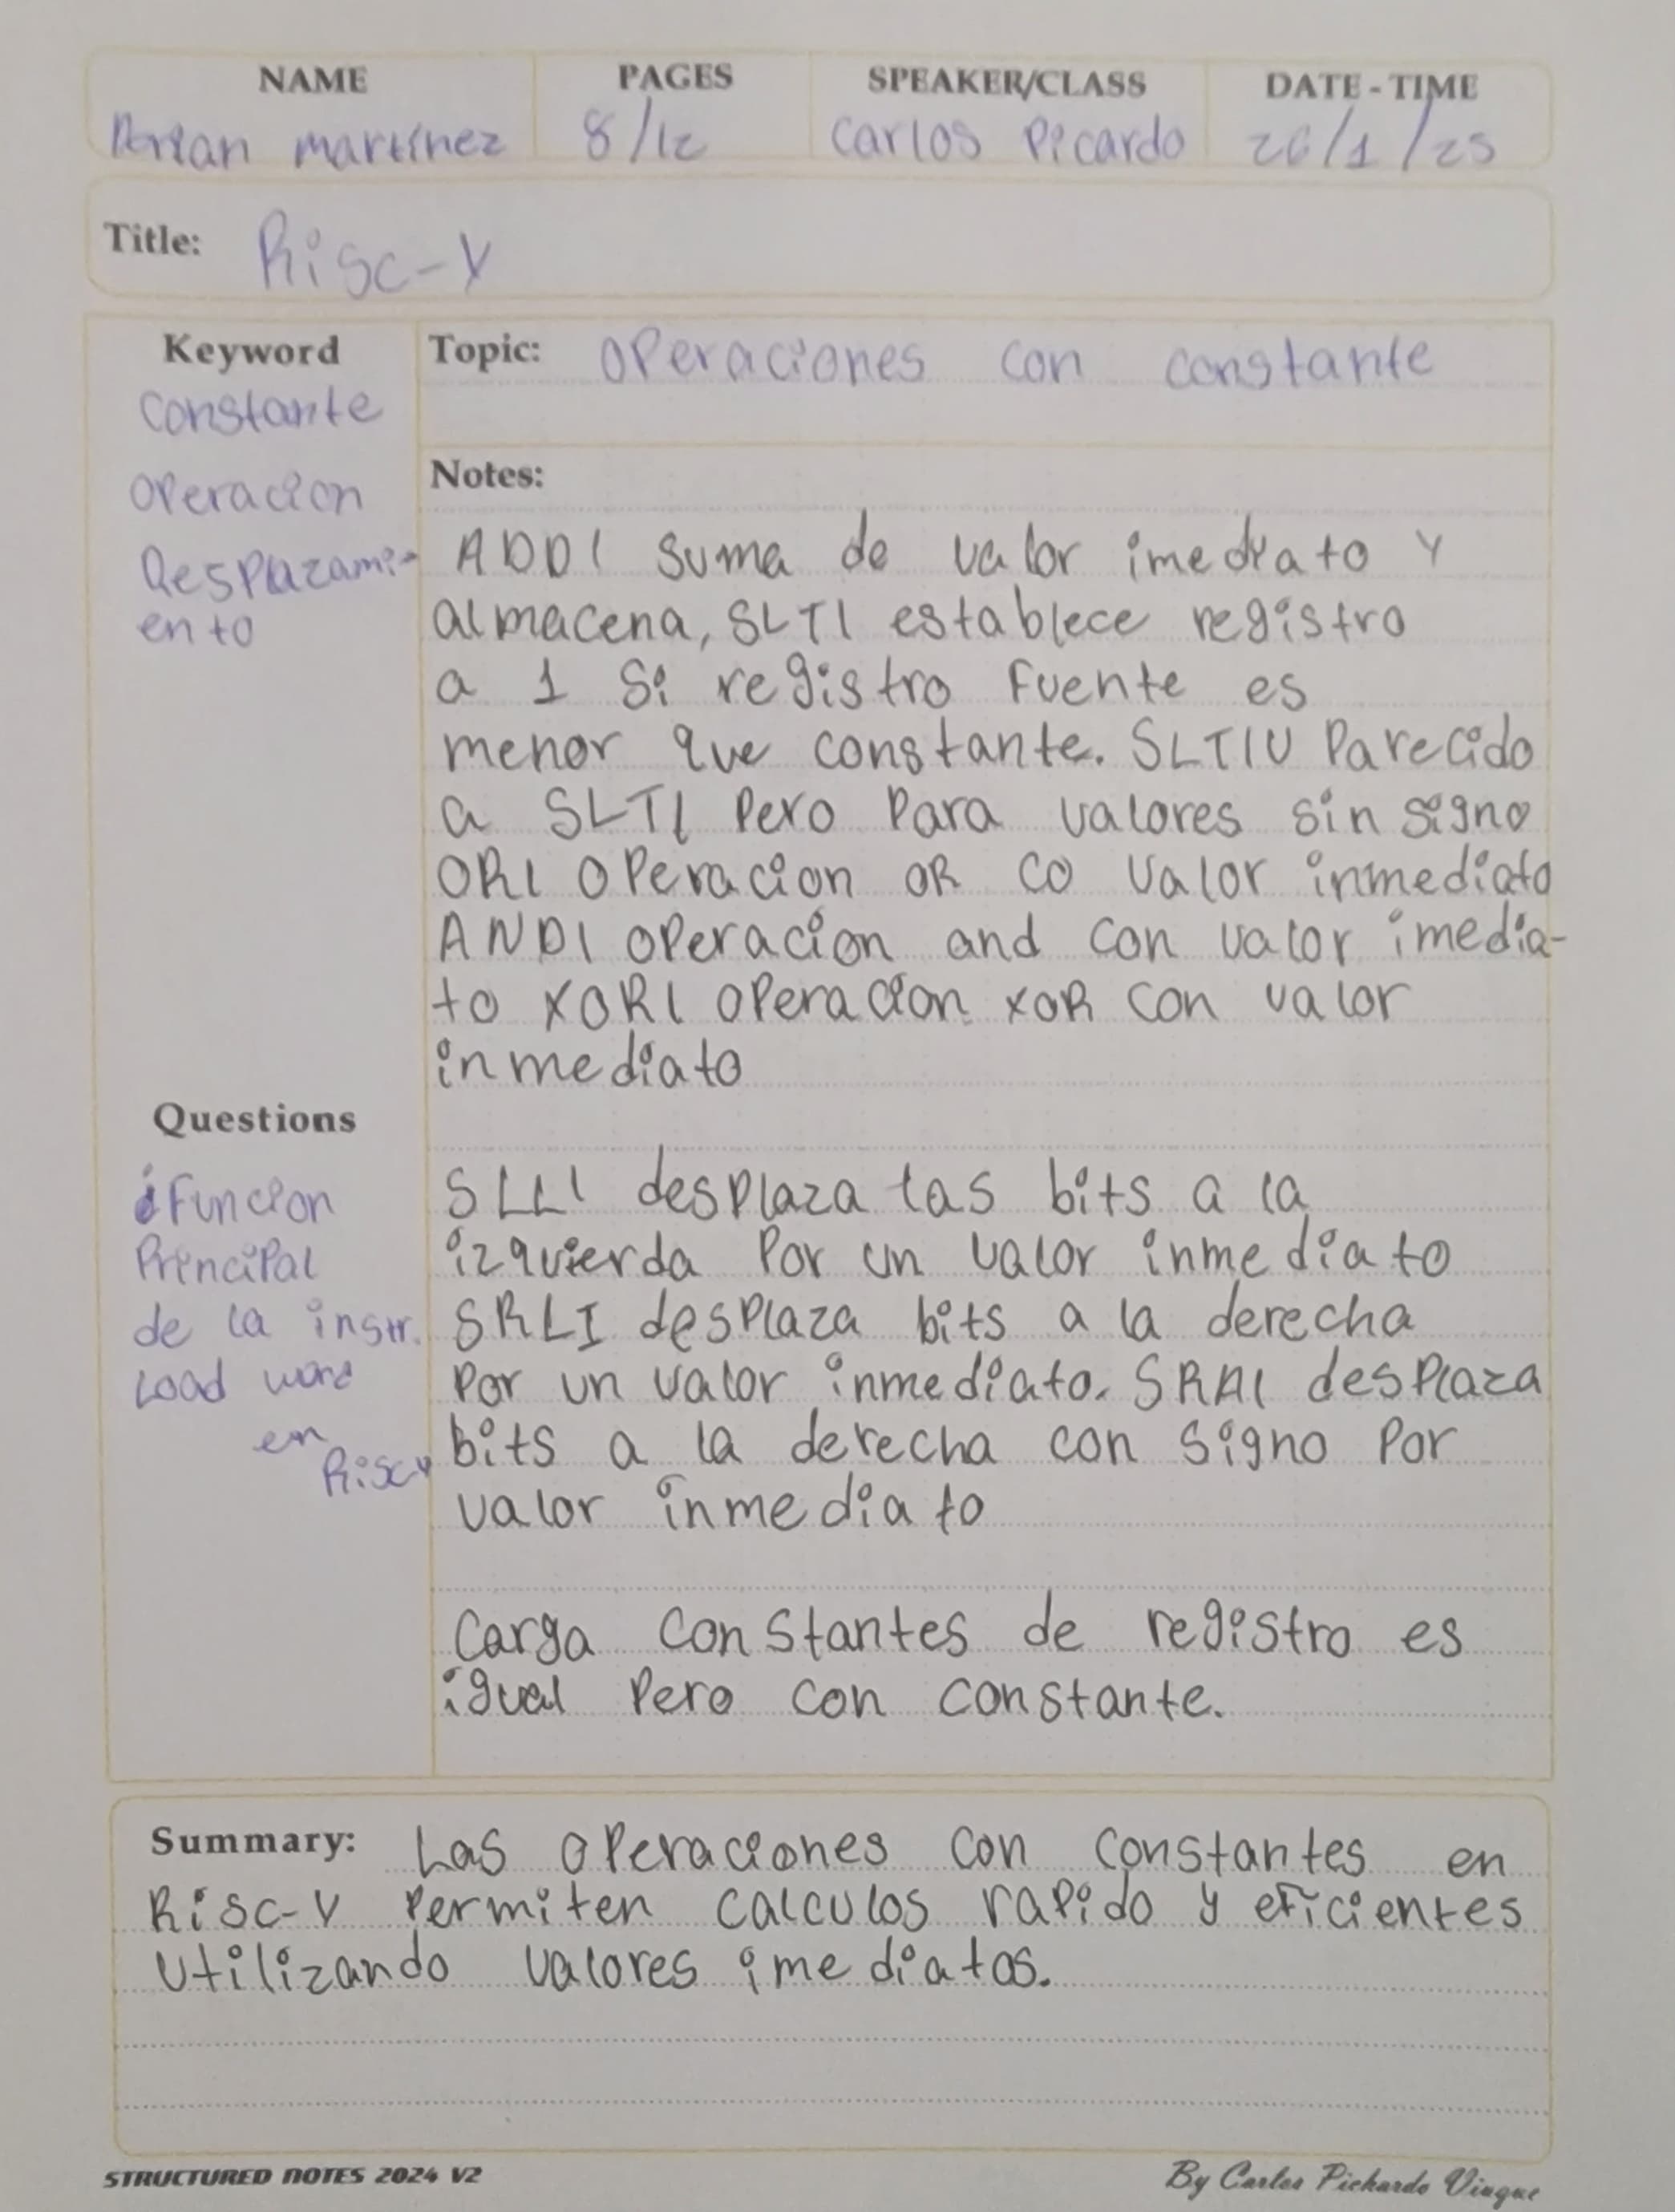 NAME PAGES SPEAKER/CLASS DATE - TIME
Martinez 8/12 Carlos Picardo 26/1/25
Title: Risc-V
Keyword
Constante
Operacion
Desplazami-
ento
Topic: Operaciones con constante
Notes:
ADDI suma de valor imediato y
almacena, SLTI establece registro
a 1 si registro fuente es
menor que constante. SLTIU Parecido
a SLTI Pero Para valores sin signo
ORI Operacion OR co valor inmediato
ANDI operacion and con valor imedia-
to XORI operacion XOR con valor
inmediato
Questions
¿Funcion
Principal
de la instr.
Load word
en
Risc-V
SLLI desplaza las bits a la
izquierda Por un valor inmediato
SRLI desplaza bits a la derecha
Por un valor inmediato. SRAI desplaza
bits a la derecha con signo Por
valor inmediato
Carga constantes de registro es
igual Pero con constante.
Summary: Las operaciones con constantes en
Risc-V Permiten calculos rapido y eficientes
utilizando valores imediatos.
STRUCTURED NOTES 2024 V2
By Carlos Pichardo Viuque